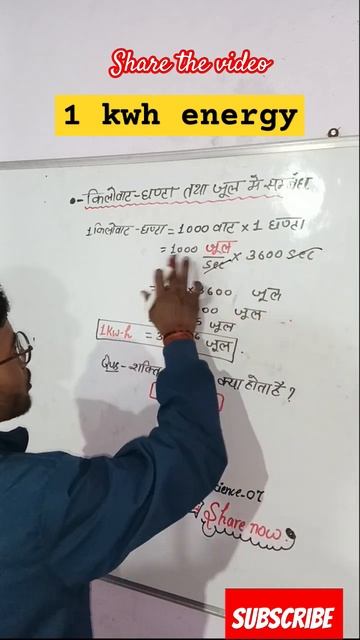 Share the video
1 kwh energy
•- किलोवाट-घण्टा तथा जूल मे सम्बंध
1 किलोवाट-घण्टा = 1000 वाट × 1 घण्टा
= 1000 जूल/sec × 3600 sec
×3600 जूल
00 जूल
जूल
1Kw-h = 3 6 जूल.
Qus- शक्ति क्या होता है ?
ience-07
Share now.
SUBSCRIBE